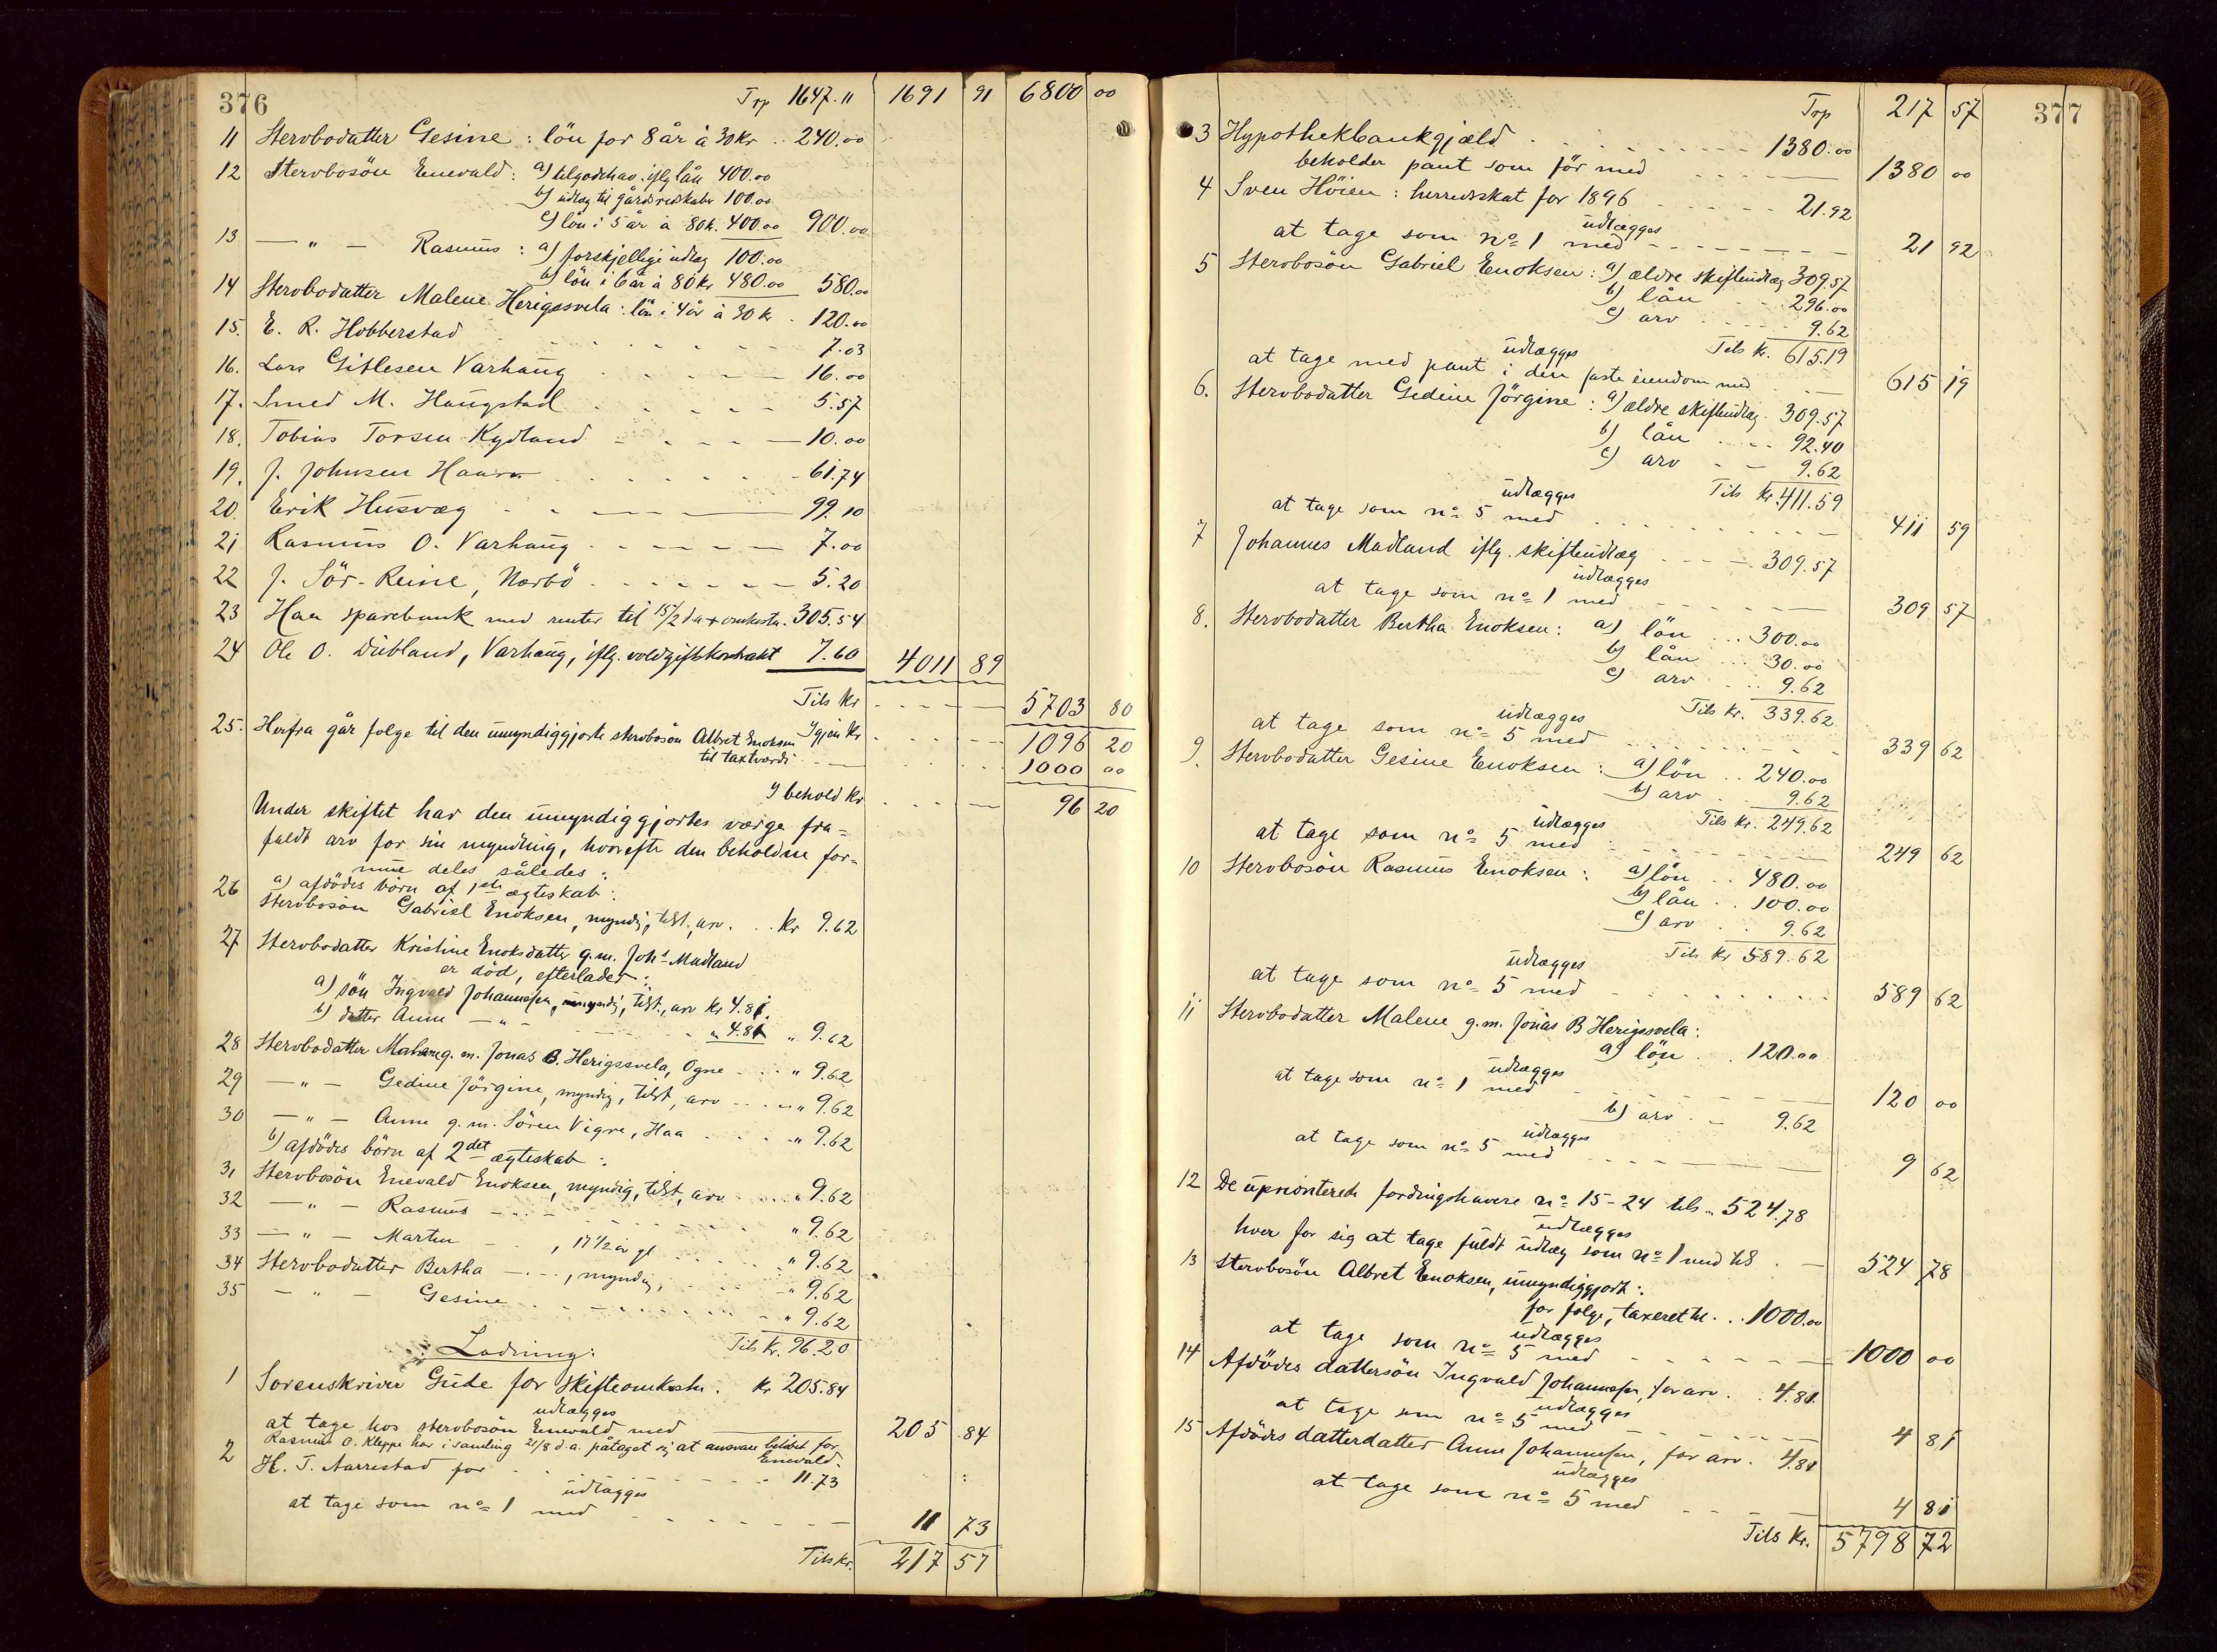 376
Trp 1647.11 1691 91 6800 00
11 Stervbodatter Gesine : lön for 8 år à 30 Kr .. 240.00
12 Stervbosön Enevald : a) tilgodehav. iflg lån 400.00
b) udlæg til gårdsredskaber 100.00
c) lön i 5 år à 80 k. 400.00 900.00
13 — " — Rasmus : a) forskjellige udlæg 100.00
b) lön i 6 år à 80 kr 480.00 580.00
14 Stervbodatter Malene Herigssvela : lön i 4 år à 30 kr . 120.00
15. E. R. Hobberstad 7.03
16. Lars Gitlesen Varhaug 16.00
17. Smed M. Haugstad 5.57
18. Tobias Torsen Kydland 10.00
19. J. Johnsen Haarr 61.74
20. Erik Husvæg 99.10
21 Rasmus O. Varhaug 7.00
22 J. Sör-Reine, Nærbö 5.20
23 Haa sparebank med renter til 15/2 d.a + omkostn. 305.54
24 Ole O. Dubland, Varhaug, iflg. voldgiftskontrakt 7.60 4011 89
Tils Kr 5703 80
Igjen Kr 1096 20
25. Herfra går folge til den umyndiggjorte stervbosön Albret Enoksen
til taxtværdi 1000 00
I behold Kr 96 20
Under skiftet har den umyndiggjortes værge fra=
faldt arv for sin myndling, hvorefter den beholdne for=
mue deles således :
26 a) afdödes börn af 1ste ægteskab :
Stervbosön Gabriel Enoksen, myndig, tilst., arv . . . Kr 9.62
27 Stervbodatter Kristine Enoksdatter g.m. Johs Madland
er död, efterlader :
a) sön Ingvald Johannesen, umyndig, tilst., arv Kr 4.81.
b) datter Anne — " — " 4.81 " 9.62
28 Stervbodatter Malene g.m. Jonas B. Herigssvela, Ogne " 9.62
29 — " — Gedine Jörgine, myndig, tilst, arv " 9.62
30 — " — Anne g.m. Sören Vigre, Haa " 9.62
b) afdödes börn af 2det ægteskab :
31 Stervbosön Enevald Enoksen, myndig, tilst, arv " 9.62
32 — " — Rasmus " 9.62
33 — " — Martin , 17 1/2 år gl " 9.62
34 Stervbodatter Bertha , myndig, " 9.62
35 — " — Gesine " 9.62
Tils Kr. 96.20
Lodning:
1 Sorenskriver Gude for skifteomkostn. Kr. 205.84
udlægges
at tage hos stervbosön Enevald med 205 84
Rasmus O. Kleppe har i samling 21/8 d.a. påtaget sig at ansvare belöbet for
Enevald.
2 H. T. Aarrestad for 11.73
udlægges
at tage som no 1 med 11 73
Tils Kr. 217 57
377
Trp 217 57
3 Hypothekbankgjæld 1380.00
beholder pant som för med 1380 00
4 Sven Höien : herredsskat for 1896 21.92
udlægges
at tage som no 1 med 21 92
5 Stervbosön Gabriel Enoksen : a) ældre skifteudlæg 309.57
b) lån 296.00
c) arv 9.62
udlægges Tils Kr. 615.19
at tage med pant i den faste eiendom med 615 19
6. Stervbodatter Gedine Jörgine : a) ældre skifteudlæg 309.57
b) lån 92.40
c) arv 9.62
udlægges Tils Kr. 411.59
at tage som no 5 med 411 59
7 Johannes Madland iflg. skifteudlæg 309.57
udlægges
at tage som no 1 med 309 57
8. Stervbodatter Bertha Enoksen : a) lön 300.00
b) lån 30.00
c) arv 9.62
udlægges Tils Kr. 339.62
at tage som no 5 med 339 62
9. Stervbodatter Gesine Enoksen : a) lön 240.00
b) arv 9.62
udlægges Tils Kr. 249.62
at tage som no 5 med 249 62
10 Stervbosön Rasmus Enoksen : a) lön 480.00
b) lån 100.00
c) arv 9.62
udlægges Tils Kr 589.62
at tage som no 5 med 589 62
11 Stervbodatter Malene g.m. Jonas B Herigssvela :
a) lön 120.00
udlægges
at tage som no 1 med 120 00
b) arv 9.62
udlægges
at tage som no 5 med 9 62
12 De uprioriterede fordringshavere no 15-24 tils .. 524.78
udlægges
hver for sig at tage fuldt udlæg som no 1 med tils 524 78
13 Stervbosön Albret Enoksen, umyndiggjort :
for folge, taxeret til . . 1000.00
udlægges
at tage som no 5 med 1000 00
14 Afdödes dattersön Ingvald Johannesen, for arv . . 4.81
udlægges
at tage som no 5 med 4 81
15 Afdödes datterdatter Anne Johannesen, for arv . 4.81
udlægges
at tage som no 5 med 4 81
Tils Kr. 5798 72